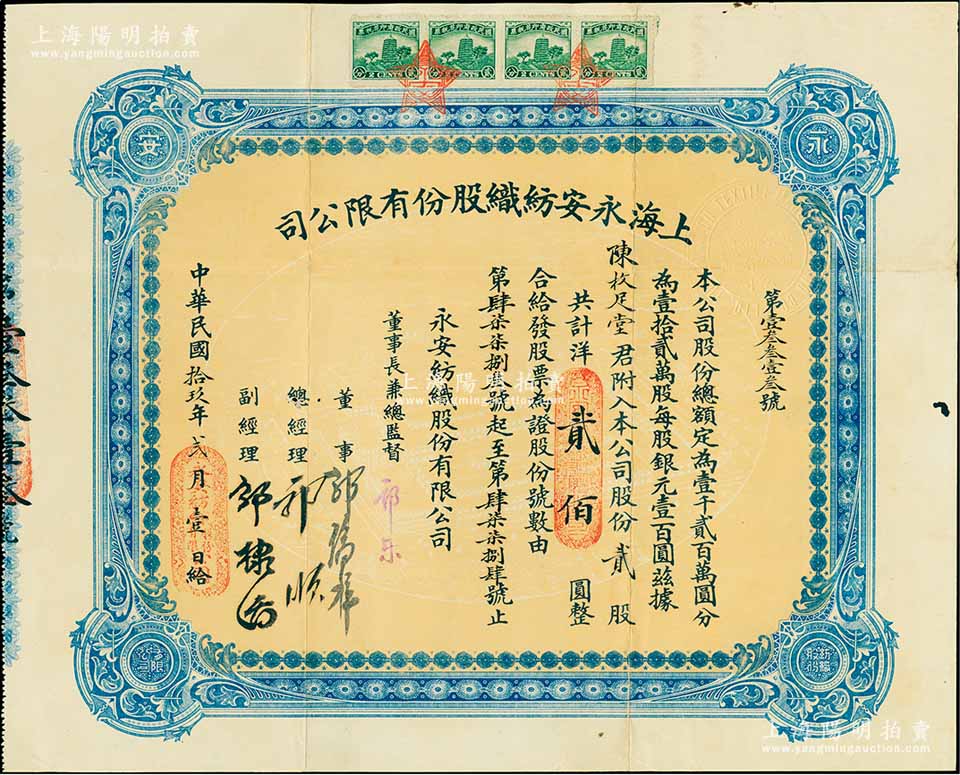 上海陽明拍賣
www.yangmingauction.com
2 CENTS
2 CENTS
2 CENTS
2 CENTS
永
安
上海永安紡織股份有限公司
第壹叁叁壹叁號
本公司股份總額定為壹千貳百萬圓分
為壹拾貳萬股每股銀元壹百圓茲據
陳枚足堂君附入本公司股份貳股
共計洋貳佰圓整
合給發股票為證股份號數由
第肆柒柒捌叁號起至第肆柒柒捌肆號止
永安紡織股份有限公司
董事長兼總監督
董事
總經理
副經理
中華民國拾玖年弍月壹日給
紡織股份
有限公司
上海陽明拍賣
www.yangmingauction.com